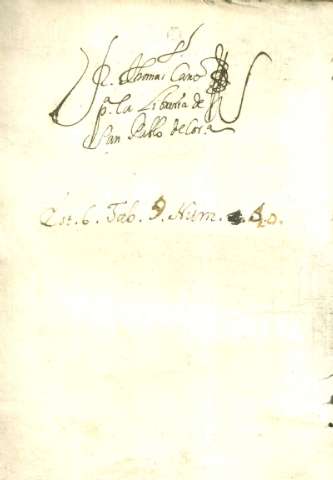 Thomas Cano
pa. la Libreria de
San Pablo de Cora
Est. 6. Tab. 9. Num. 40.